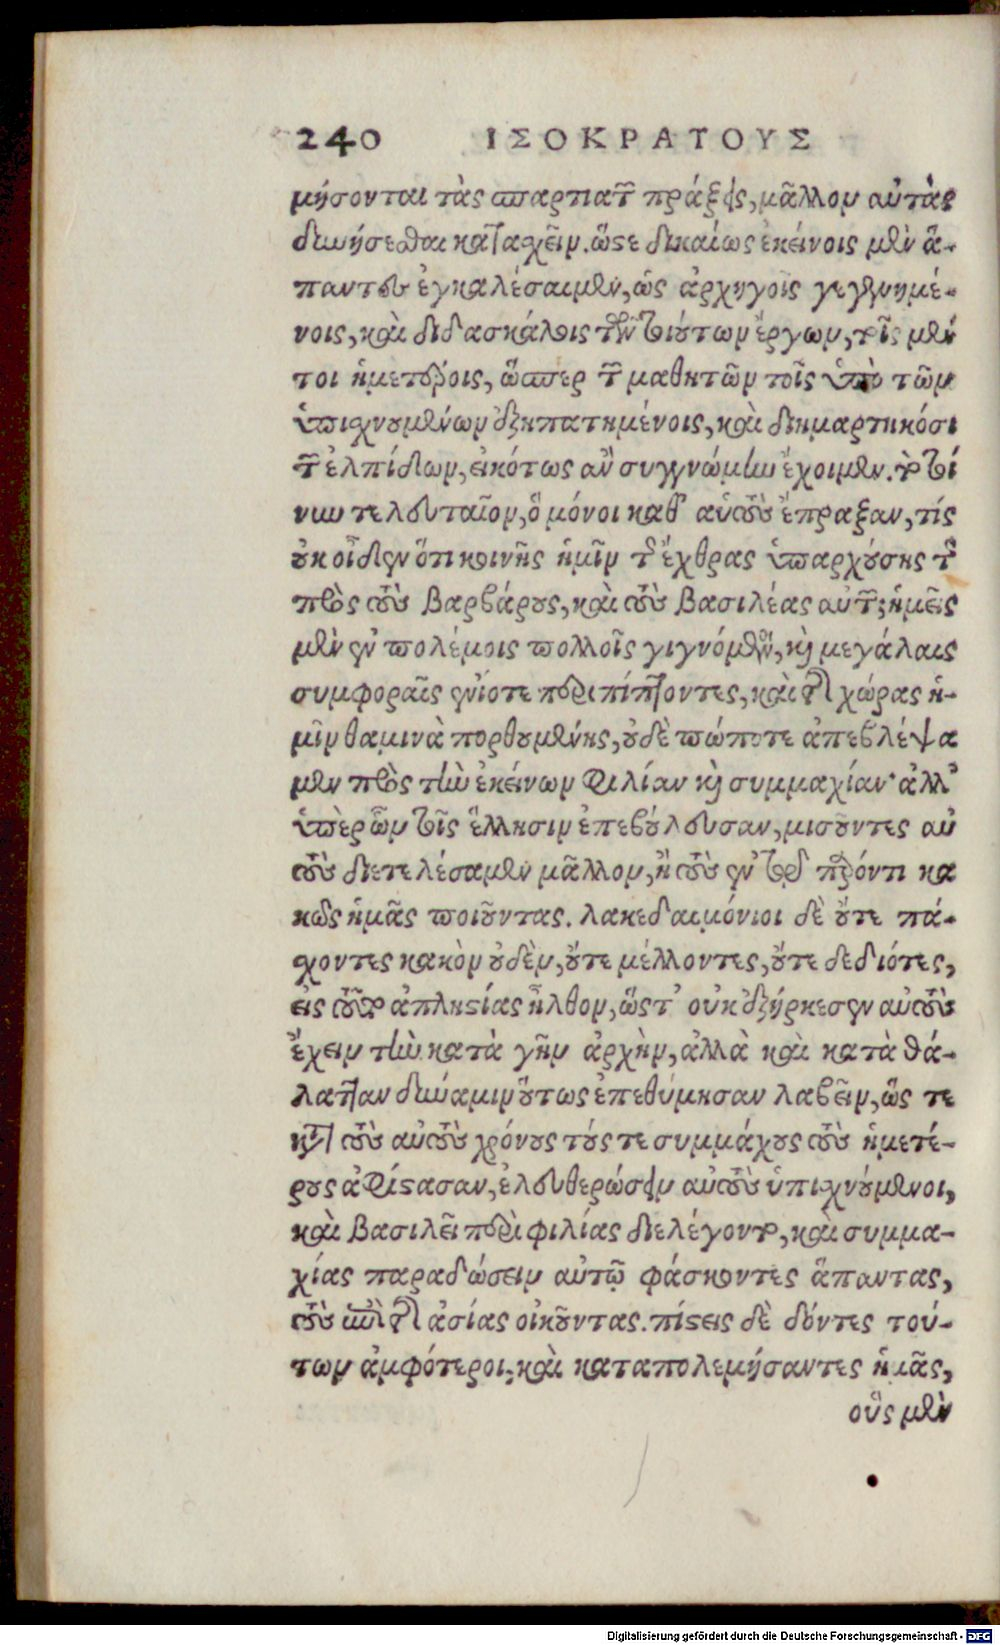 240 ΙΣΟΚΡΑΤΟΥΣ
μήσονται τὰς σπαρτιατῶν πράξεις, μᾶλλον αὐτὰς
διωήσεσθαι κατασχεῖν. ὥστε δικαίως ἐκείνοις μὲν ἅ-
παντες ἐγκαλέσαιμεν, ὡς ἀρχηγοῖς γεγενημέ-
νοις, καὶ διδασκάλοις τῶν τοιούτων ἔργων, τοῖς μέν
τοι ἡμετέροις, ὥσπερ τῶν μαθητῶν τοῖς ὑπὸ τῶν
ὑπισχνουμένων ἐξηπατημένοις, καὶ διημαρτηκόσι
τῶν ἐλπίδων, εἰκότως ἂν συγγνώμην ἔχοιμεν. τὸ τοί
νυν τελευταῖον, ὃ μόνοι καθ' αὑτοὺς ἔπραξαν, τίς
οὐκ οἶδεν ὅτι κοινῆς ἡμῖν τῆς ἔχθρας ὑπαρχούσης τῆς
πρὸς τοὺς βαρβάρους, καὶ τοὺς βασιλέας αὐτῶν; ἡμεῖς
μὲν ἐν πολέμοις πολλοῖς γιγνόμενοι, καὶ μεγάλαις
συμφοραῖς ἐνίοτε περιπίπτοντες, καὶ τῆς χώρας ἡ-
μῖν θαμινὰ πορθουμένης, οὐδὲ πώποτε ἀπεβλέψα
μεν πρὸς τὴν ἐκείνων φιλίαν καὶ συμμαχίαν· ἀλλ'
ὑπὲρ ὧν τοῖς ἕλλησιν ἐπεβούλευσαν, μισοῦντες αὐ
τοὺς διετελέσαμεν μᾶλλον, ἢ τοὺς ἐν τῷ παρόντι κα
κῶς ἡμᾶς ποιοῦντας. λακεδαιμόνιοι δὲ οὔτε πά-
σχοντες κακὸν οὐδὲν, οὔτε μέλλοντες, οὔτε δεδιότες,
εἰς τοῦτο ἀπληστίας ἦλθον, ὥστ' οὐκ ἐξήρκεσεν αὐτοὺς
ἔχειν τὴν κατὰ γῆν ἀρχὴν, ἀλλὰ καὶ κατὰ θά-
λατταν δύναμιν οὕτως ἐπεθύμησαν λαβεῖν, ὥς τε
κατὰ τοὺς αὐτοὺς χρόνους τούς τε συμμάχους τοὺς ἡμετέ-
ρους ἀφίστασαν, ἐλευθερώσειν αὐτοὺς ὑπισχνούμενοι,
καὶ βασιλεῖ περὶ φιλίας διελέγοντο, καὶ συμμα-
χίας παραδώσειν αὐτῷ φάσκοντες ἅπαντας,
τοὺς ἐπὶ τῆς ἀσίας οἰκοῦντας. πίστεις δὲ δόντες τού-
των ἀμφότεροι, καὶ καταπολεμήσαντες ἡμᾶς,
οὓς μὲν
Digitalisierung gefördert durch die Deutsche Forschungsgemeinschaft - DFG